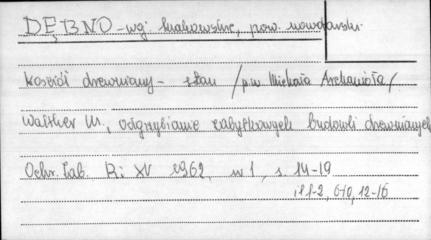 DĘBNO - woj. krakowskie, pow. nowotarski
Kościół drewniany - stan /p.w. Michała Archanioła/
Walther M., Odgrzybianie zabytkowych budowli drewnianych
Ochr. Zab. R: XV 1962, nr 1, s. 14-19
il 1-2, 12-16